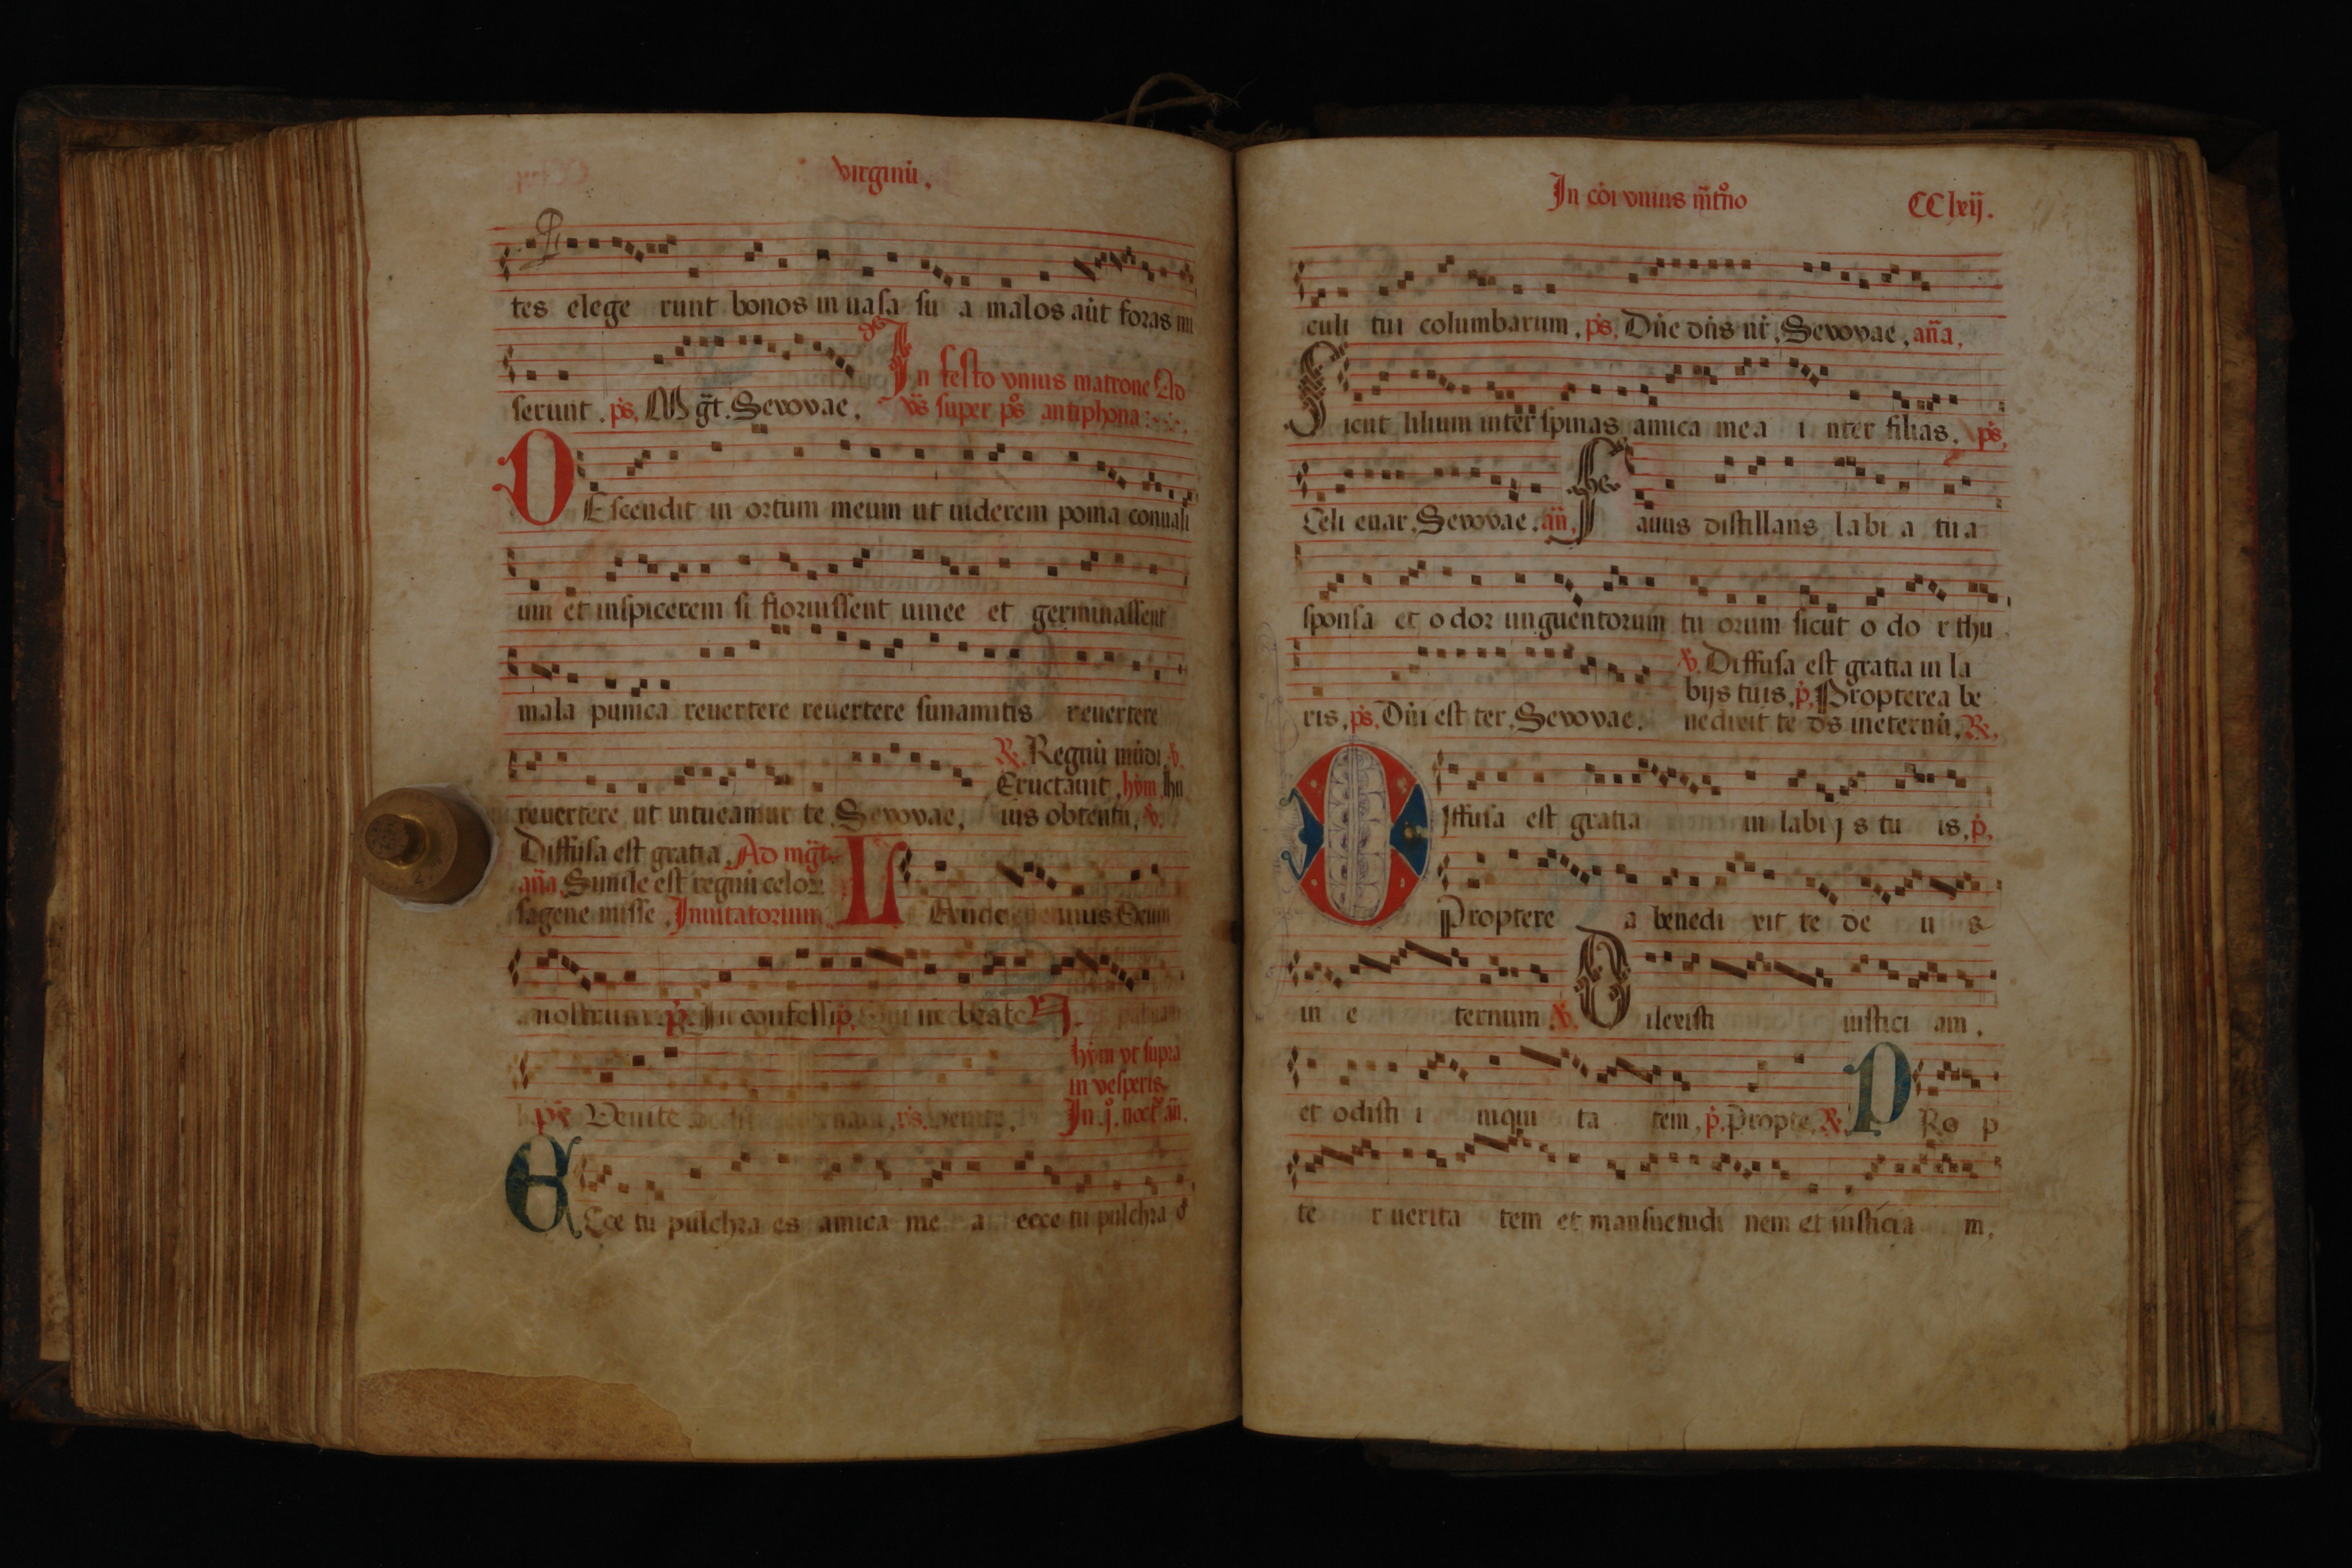 virginū.
tes elege runt bonos in uasa su a malos aūt foras mi
serunt. ps. Mgt. Sevovae. In festo vnius matrone Ad
vs super ps antiphona
DEscendit in ortum meum ut uiderem poma conuali
um et inspicerem si floruissent uinee et germinassent
mala punica reuertere reuertere sunamitis reuertere
reuertere ut intueamur te. Sevovae.
R. Regnū mūdi. v.
Eructauit. hym. Ihu
uis obtentu. v.
Diffusa est gratia. Ad mgt.
aña. Simile est regnū celor
sagene misse. Inuitatorium.
LAude mus Deum
nostrum. In confessi. beate
ps Venite
hym vt supra
in vesperis.
In .j. noct. añ.
ECce tu pulchra es amica me a ecce tu pulchra
In cōi vnius mtno
CClxij.
culi tui columbarum. ps. Dñe dñs nr. Sevovae. aña.
Sicut lilium inter spinas amica mea i nter filias. ps.
Celi enar. Sevovae. añ. Fauus distillans labi a tua
sponsa et odor unguentorum tu orum sicut o do r thu
ris. ps. Dñi est ter. Sevovae.
v. Diffusa est gratia in la
bijs tuis. p. Propterea be
nedixit te ds ineternū. R.
Diffusa est gratia in labijs tu is. p.
Proptere a benedi xit te de u s
in e ternum v. Dilexisti iustici am.
et odisti i niqui ta tem. p. Propte. R. PRo p
te r uerita tem et mansuetudi nem et iusticia m.